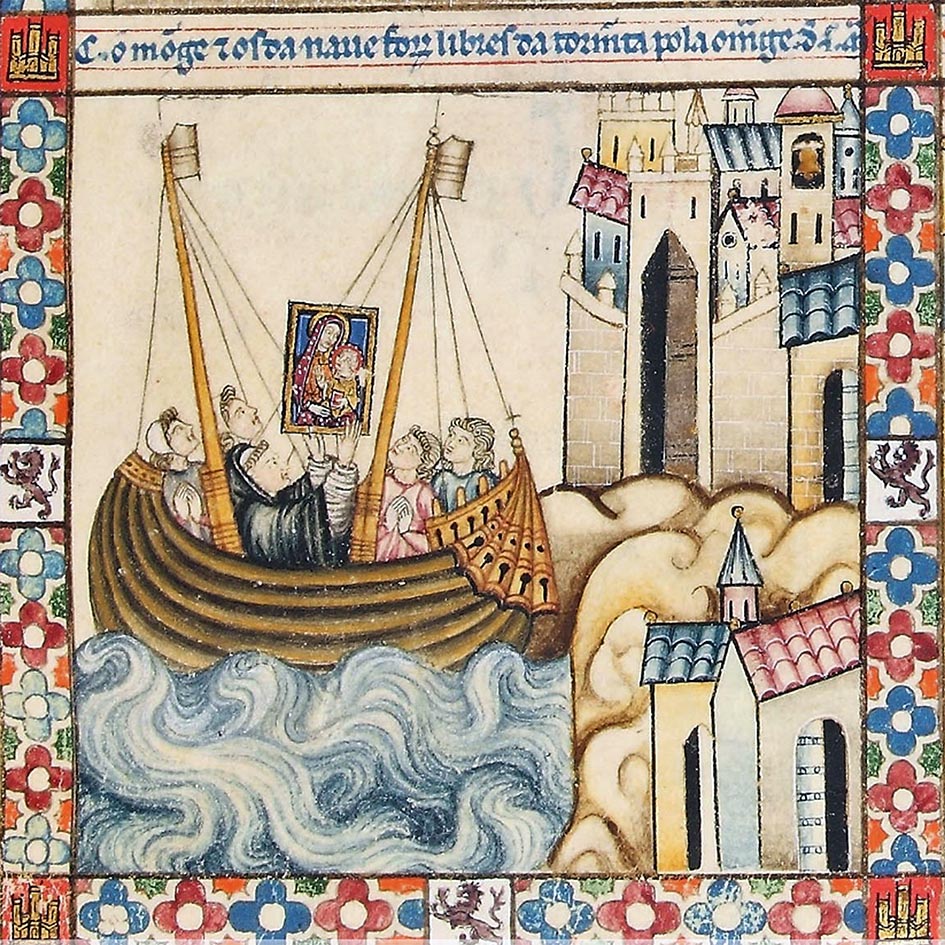 Cõ o mõge ⁊ os da naue forõ libres da torm̃ta pola om̃ge d̃ S. M̃a